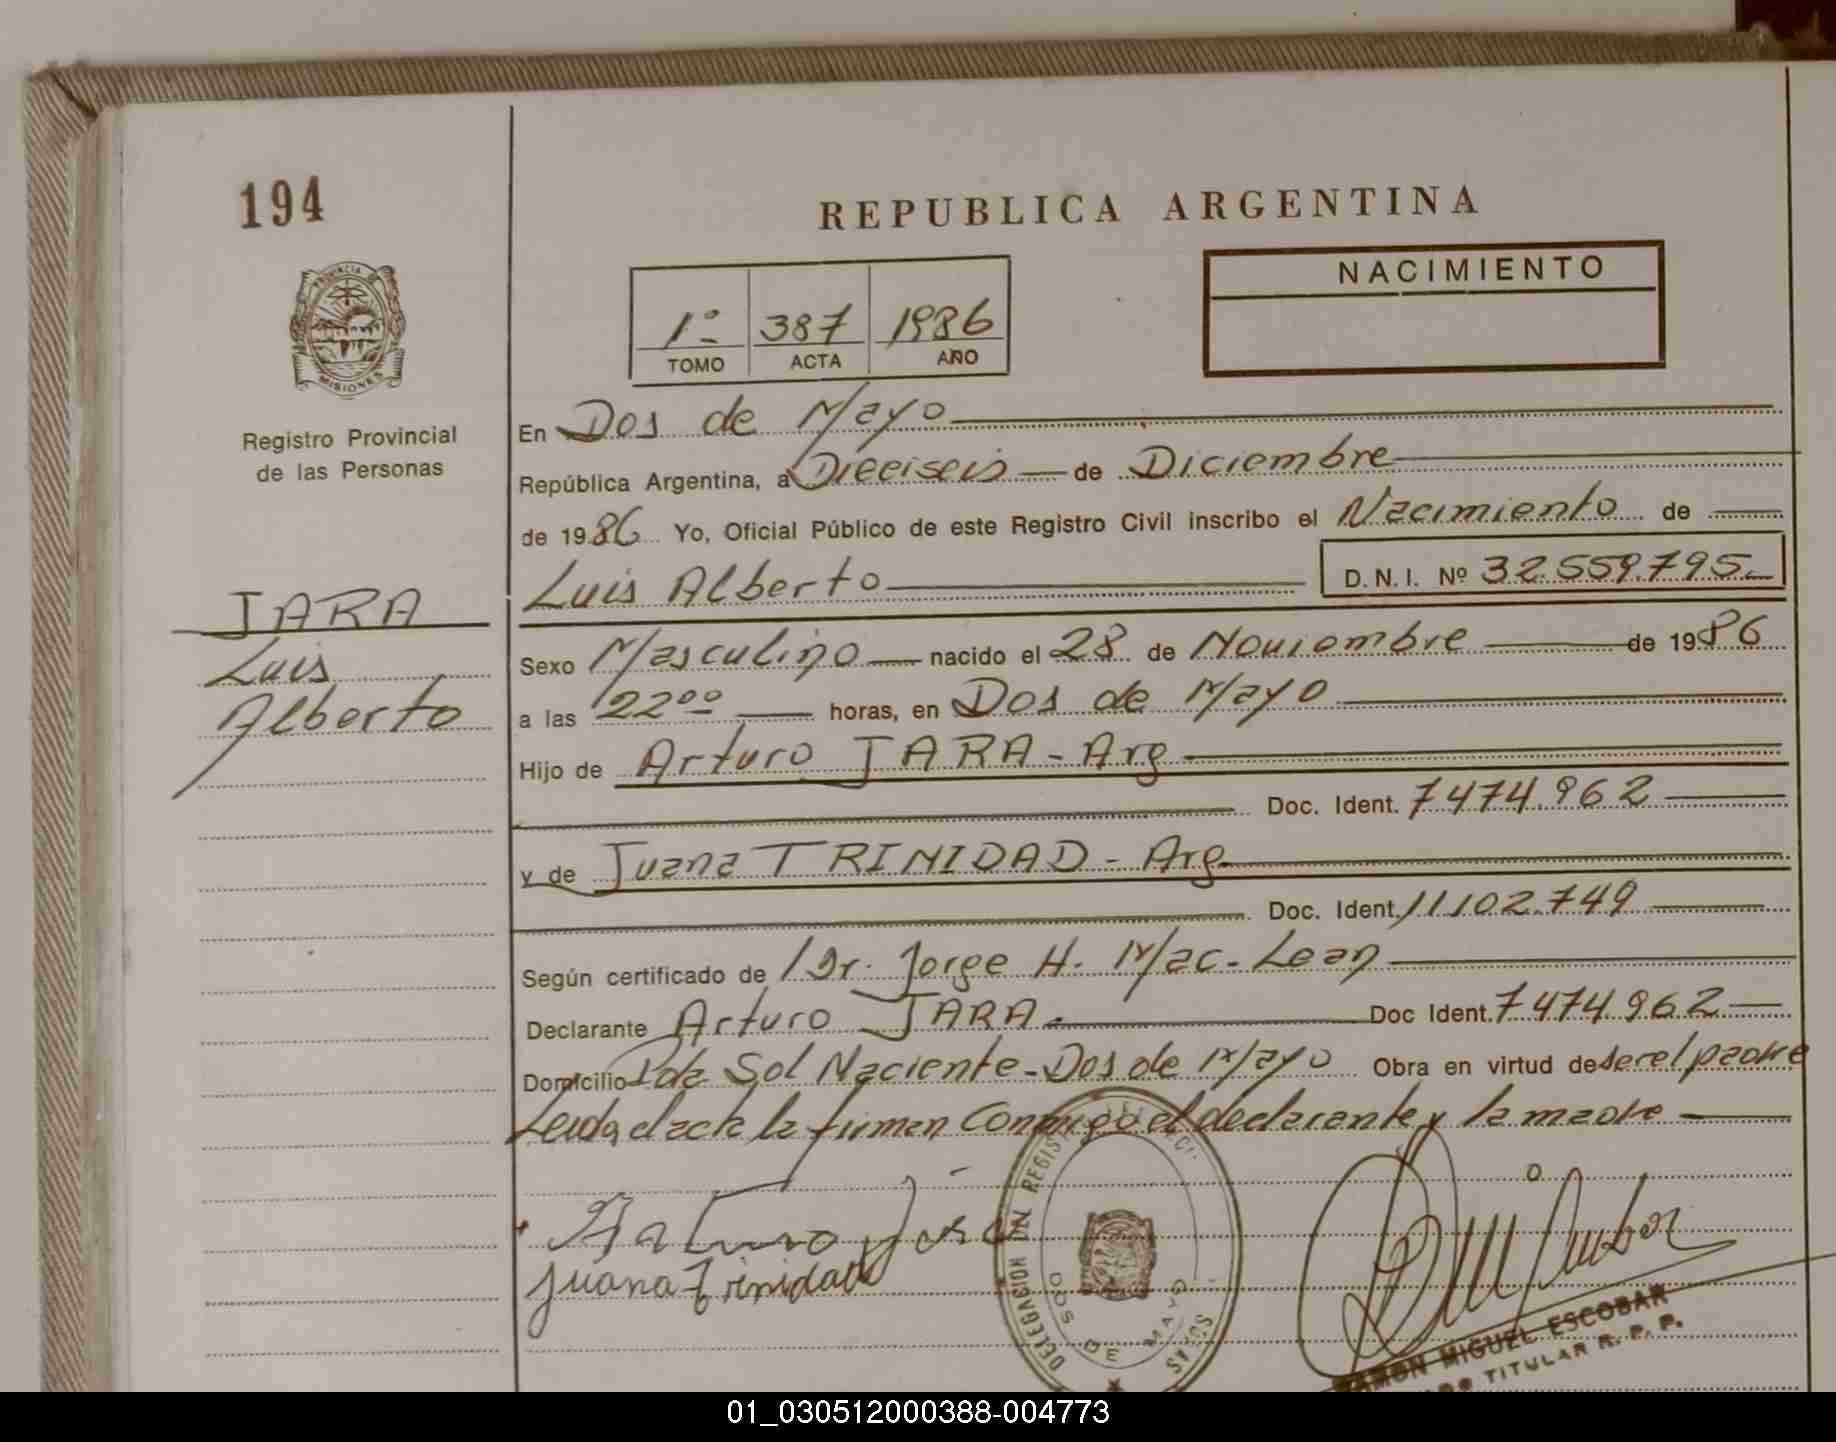 194
REPUBLICA ARGENTINA
NACIMIENTO
1º 387 1986
TOMO ACTA AÑO
PROVINCIA DE MISIONES
Registro Provincial
de las Personas
En Dos de Mayo
República Argentina, a Dieciseis de Diciembre
de 1986 Yo, Oficial Público de este Registro Civil inscribo el Nacimiento de
Luis Alberto D.N.I. Nº 32.559.795.
JARA
Luis
Alberto
Sexo Masculino nacido el 28 de Noviembre de 1986
a las 22⁰⁰ horas, en Dos de Mayo
Hijo de Arturo JARA - Arg
Doc. Ident. 7474.962
y de Juana TRINIDAD - Arg.
Doc. Ident. 11102.749
Según certificado de Dr. Jorge H. Mac-Lean
Declarante Arturo JARA. Doc Ident. 7474.962
Domicilio Pda Sol Naciente - Dos de Mayo Obra en virtud de ser el padre
Leida el acta la firman conmigo el declarante y la madre
Arturo Jara
Juana Trinidad
DELEGACION DEL REGISTRO
DOS DE MAYO
RAMON MIGUEL ESCOBAR
TITULAR R. P. P.
01_030512000388-004773